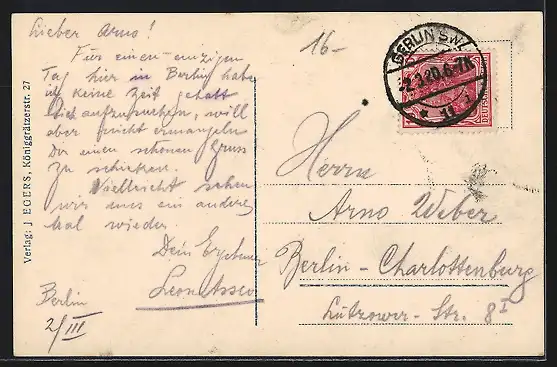 Lieber Arno!
Für einen einzigen
Tag hier in Berlin habe
ich keine Zeit gehabt
Dich aufzusuchen, will
aber nicht ermangeln
Dir einen schönen Gruss
zu schicken.
Vielleicht sehen
wir uns ein anderes
Mal wieder.
Dein
Berlin
2/III
16-
BERLIN S.W.
Herrn
Arno Weber
Berlin-Charlottenburg
Lützower-Str. 8I
Verlag: J EGERS, Königgrätzerstr. 27